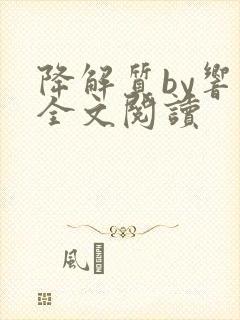 降解質by響
全文閱讀
風